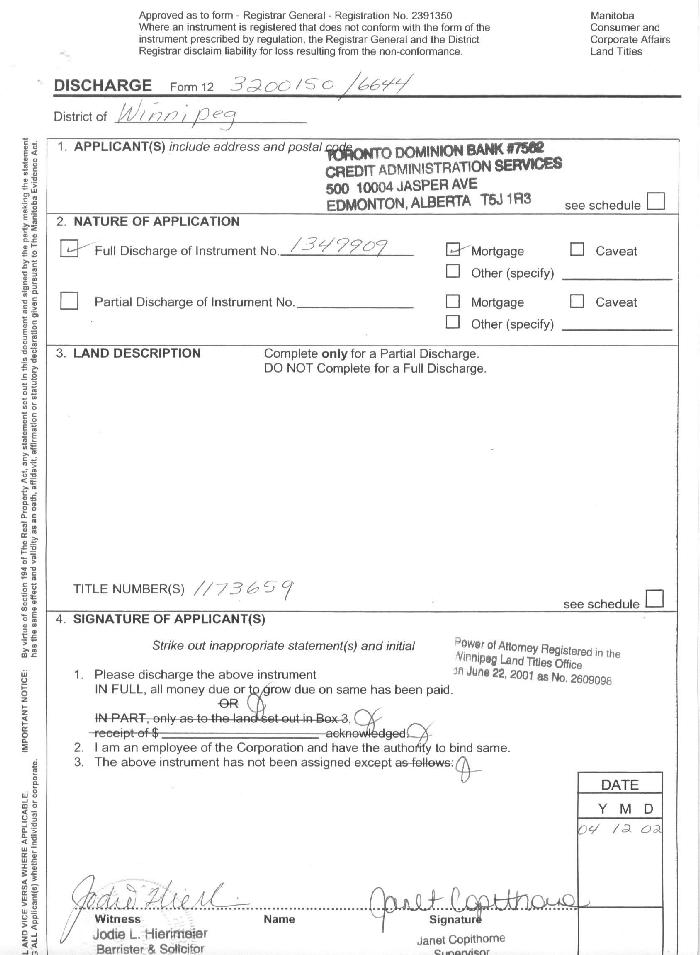 Approved as to form - Registrar General - Registration No. 2391350
Where an instrument is registered that does not conform with the form of the
instrument prescribed by regulation, the Registrar General and the District
Registrar disclaim liability for loss resulting from the non-conformance.
Manitoba
Consumer and
Corporate Affairs
Land Titles
DISCHARGE Form 12 3200150/6644
District of Winnipeg
1. APPLICANT(S) include address and postal code
TORONTO DOMINION BANK #7582
CREDIT ADMINISTRATION SERVICES
500 10004 JASPER AVE
EDMONTON, ALBERTA T5J 1R3
see schedule
2. NATURE OF APPLICATION
Full Discharge of Instrument No. 1347909 Mortgage Caveat
Other (specify)
Partial Discharge of Instrument No. Mortgage Caveat
Other (specify)
3. LAND DESCRIPTION Complete only for a Partial Discharge.
DO NOT Complete for a Full Discharge.
TITLE NUMBER(S) 1173659
see schedule
4. SIGNATURE OF APPLICANT(S)
Strike out inappropriate statement(s) and initial
Power of Attorney Registered in the
Winnipeg Land Titles Office
on June 22, 2001 as No. 2609098
1. Please discharge the above instrument
IN FULL, all money due or to grow due on same has been paid.
OR
IN PART, only as to the land set out in Box 3.
receipt of $ acknowledged
2. I am an employee of the Corporation and have the authority to bind same.
3. The above instrument has not been assigned except as follows:
DATE
Y M D
04 12 02
Janet Copithorne
Witness Name Signature
Jodie L. Hierlmeier
Barrister & Solicitor
Janet Copithorne
Supervisor
IMPORTANT NOTICE: By virtue of Section 194 of The Real Property Act, any statement set out in this document and signed by the party making the statement
has the same effect and validity as an oath, affidavit, affirmation or statutory declaration given pursuant to The Manitoba Evidence Act.
AND VICE VERSA WHERE APPLICABLE.
ALL Applicant(s) whether individual or corporate.